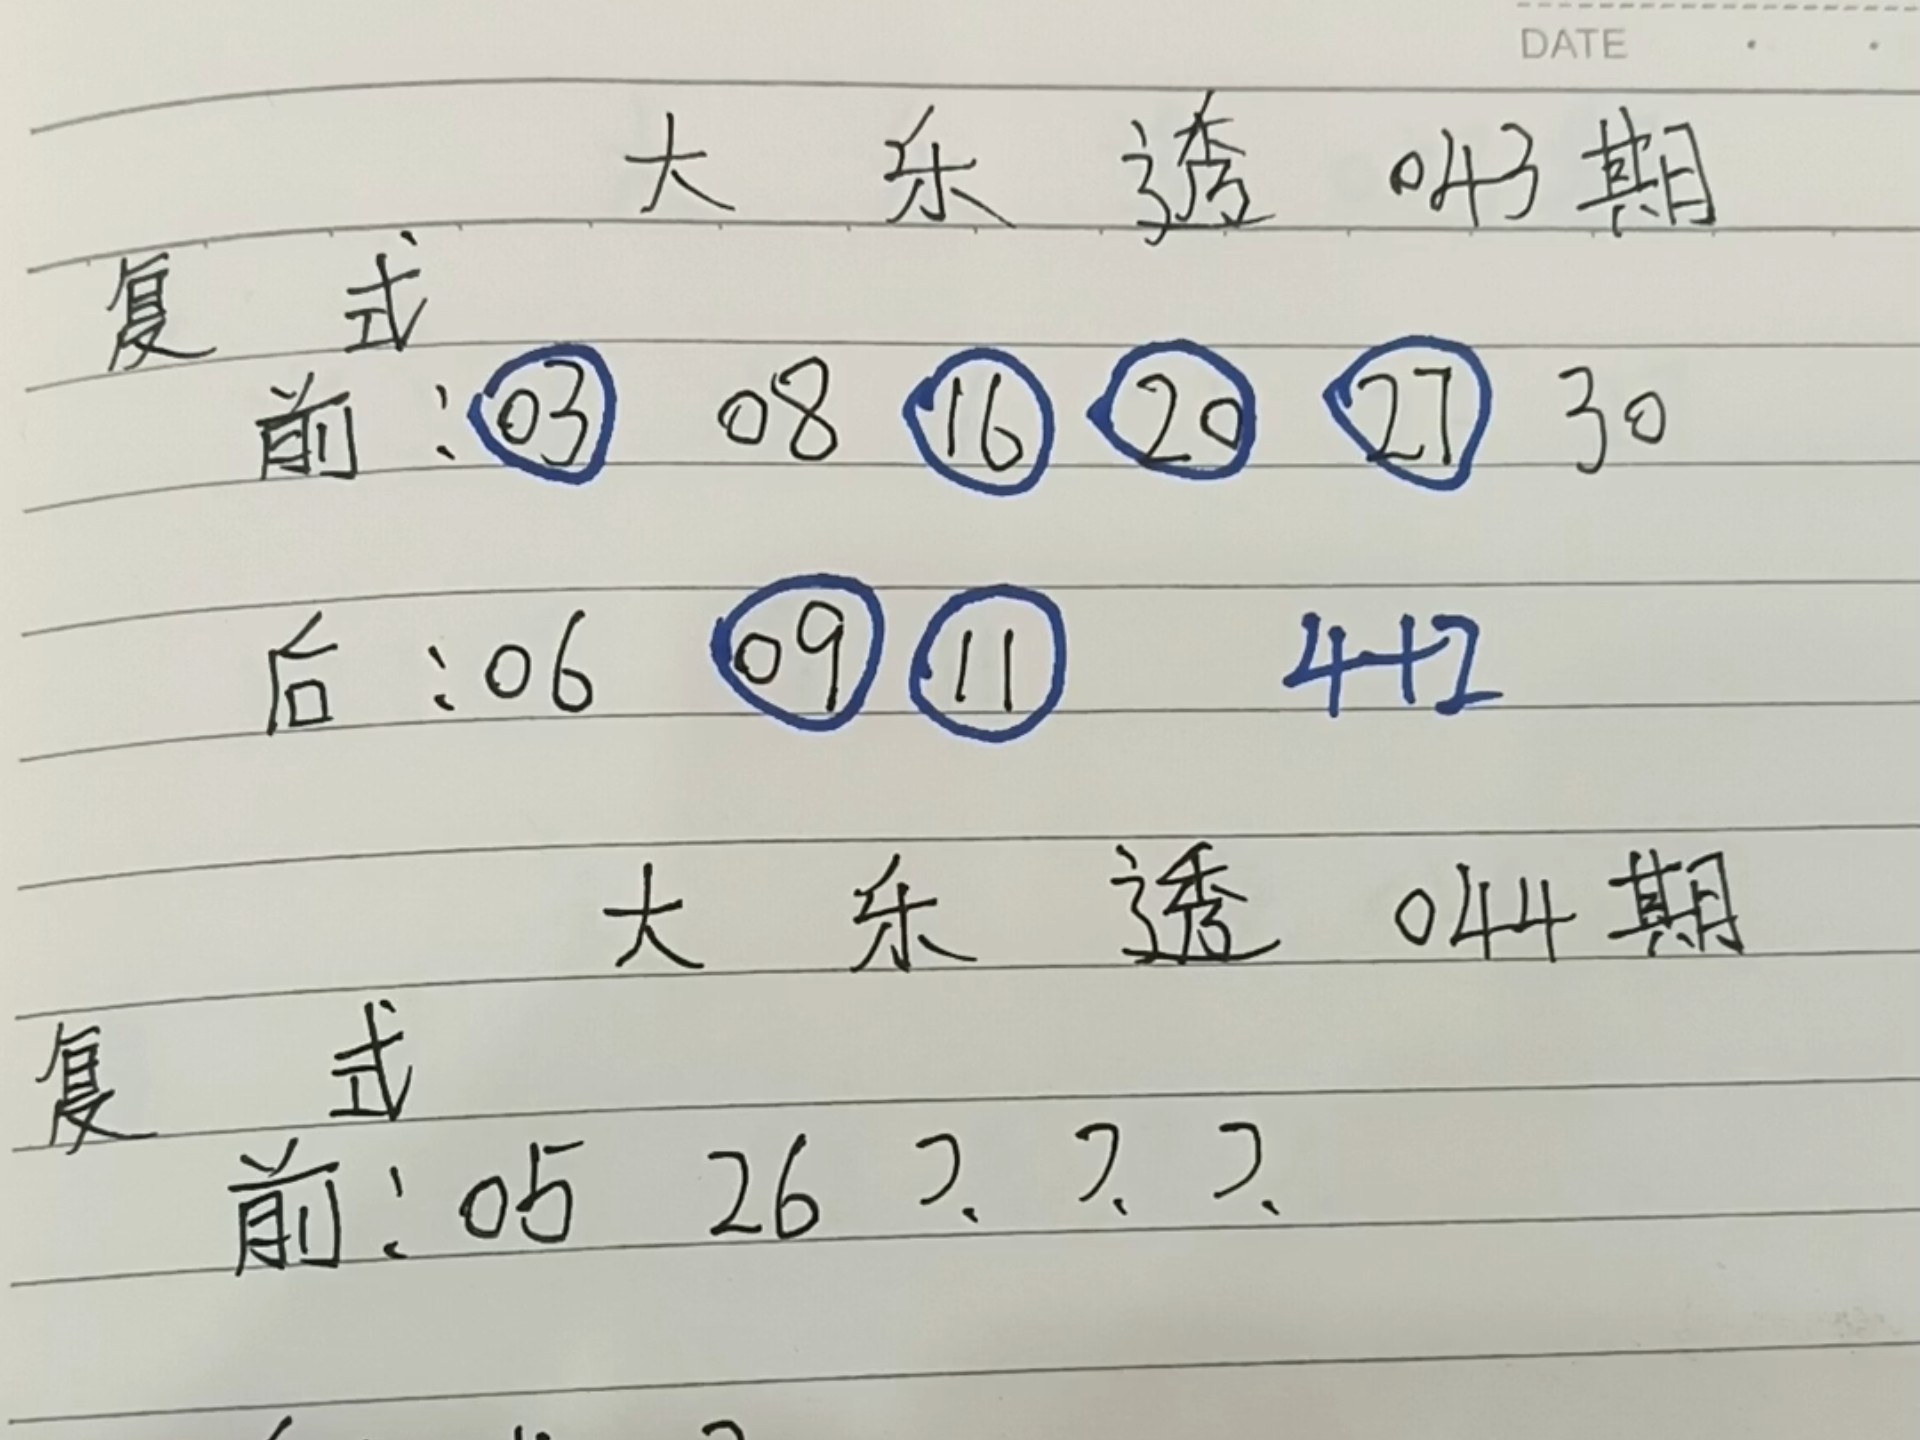 DATE
大乐透 043期
复式
前:03 08 16 20 27 30
后:06 09 11 4+2
大乐透 044期
复式
前:05 26 ? ? ?